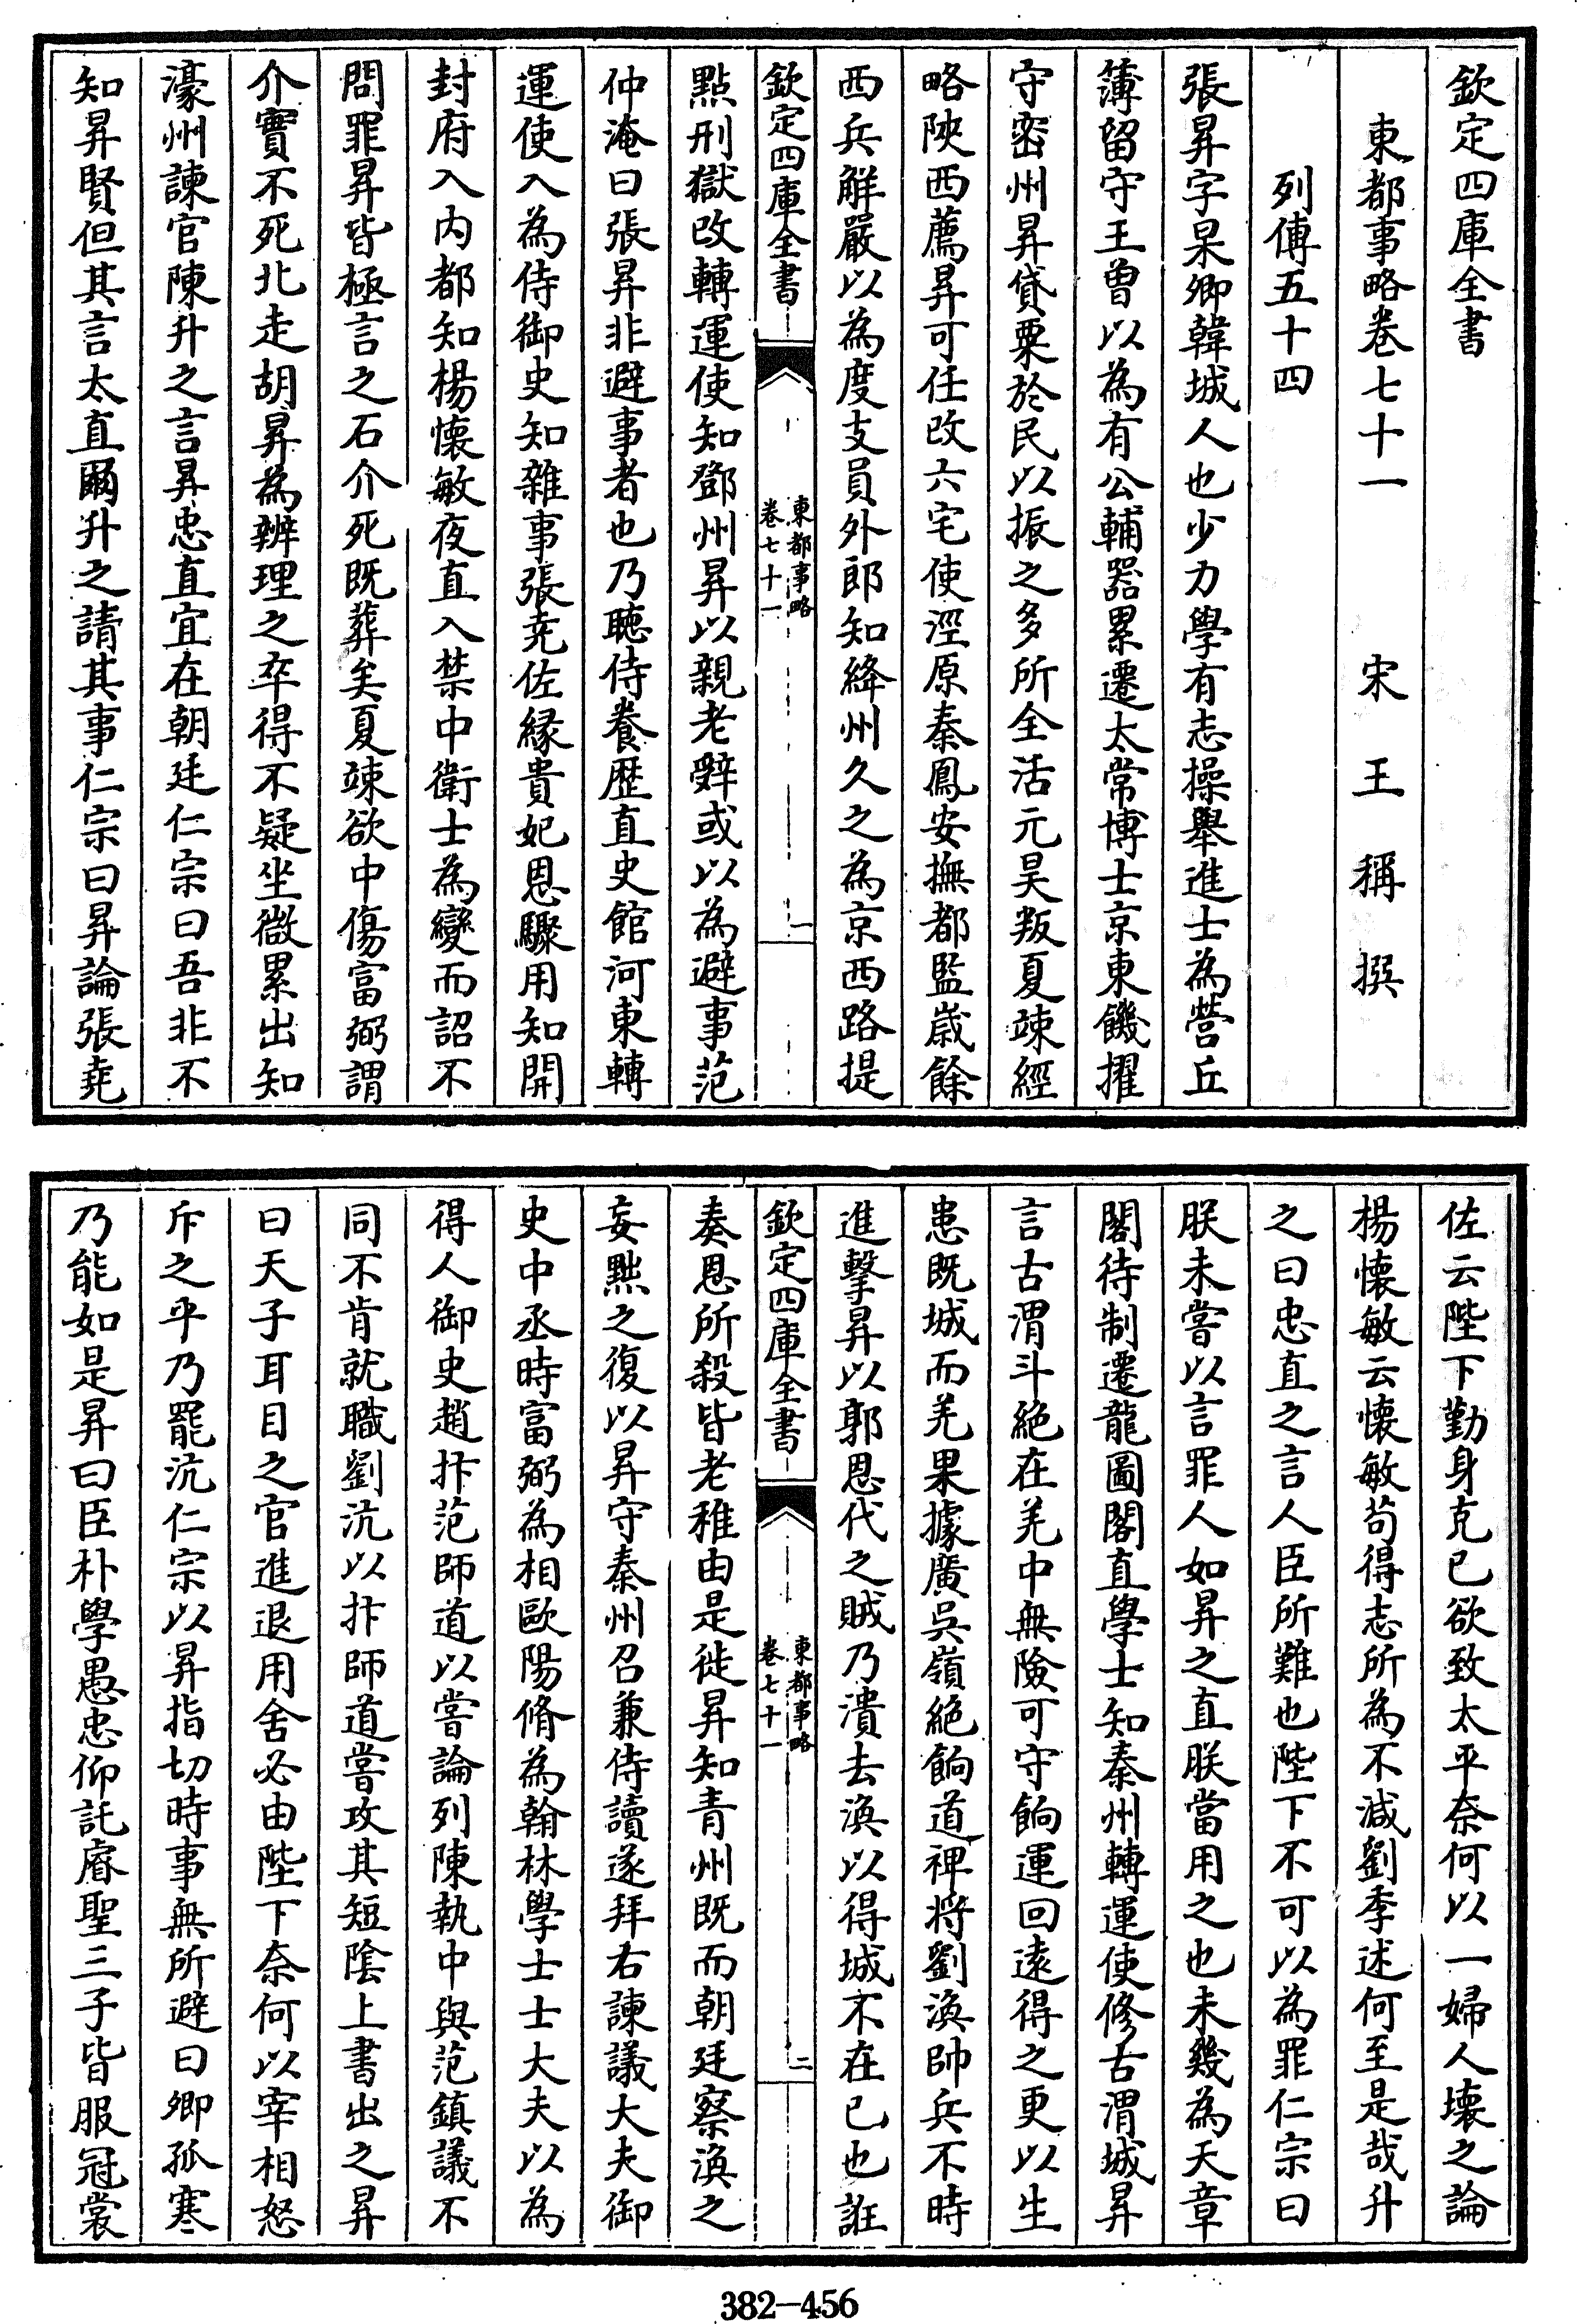 欽定四庫全書
東都事略卷七十一
宋王稱撰
列傳五十四
張昇字杲卿韓城人也少力學有志操舉進士為營丘
簿留守王曾以為有公輔器累遷太常博士京東饑擢
守密州昇貸粟於民以振之多所全活元昊叛夏竦經
略陝西薦昇可任改六宅使涇原秦鳳安撫都監歲餘
西兵解嚴以為度支員外郎知絳州久之為京西路提
欽定四庫全書
東都事略
卷七十一
一
點刑獄改轉運使知鄧州昇以親老辭或以為避事范
仲淹曰張昇非避事者也乃聽侍養歴直史館河東轉
運使入為侍御史知雜事張堯佐緣貴妃恩驟用知開
封府入内都知楊懐敏夜直入禁中衛士為變而詔不
問罪昇皆極言之石介死既葬矣夏竦欲中傷富弼謂
介實不死北走胡昇為辨理之卒得不疑坐微累出知
濠州諫官陳升之言昇忠直宜在朝廷仁宗曰吾非不
知昇賢但其言太直爾升之請其事仁宗曰昇論張堯
佐云陛下勤身克已欲致太平奈何以一婦人壊之論
楊懐敏云懐敏苟得志所為不減劉季述何至是哉升
之曰忠直之言人臣所難也陛下不可以為罪仁宗曰
朕未嘗以言罪人如昇之直朕當用之也未幾為天章
閣待制遷龍圖閣直學士知秦州轉運使修古渭城昇
言古渭斗絶在羌中無險可守餉運回逺得之更以生
患既城而羌果據廣吳嶺絶餉道裨將劉渙帥兵不時
進擊昇以郭恩代之賊乃潰去渙以得城不在已也誑
欽定四庫全書
東都事略
卷七十一
二
奏恩所殺皆老稚由是徙昇知青州既而朝廷察渙之
妄黜之復以昇守秦州召兼侍讀遂拜右諫議大夫御
史中丞時富弼為相歐陽脩為翰林學士士大夫以為
得人御史趙抃范師道以嘗論列陳執中與范鎮議不
同不肯就職劉沆以抃師道嘗攻其短隂上書出之昇
曰天子耳目之官進退用舍必由陛下奈何以宰相怒
斥之乎乃罷沆仁宗以昇指切時事無所避曰卿孤寒
乃能如是昇曰臣朴學愚忠仰託睿聖三子皆服冠裳
382-456